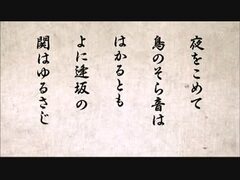 夜をこめて
鳥のそら音は
はかるとも
よに逢坂の
関はゆるさじ